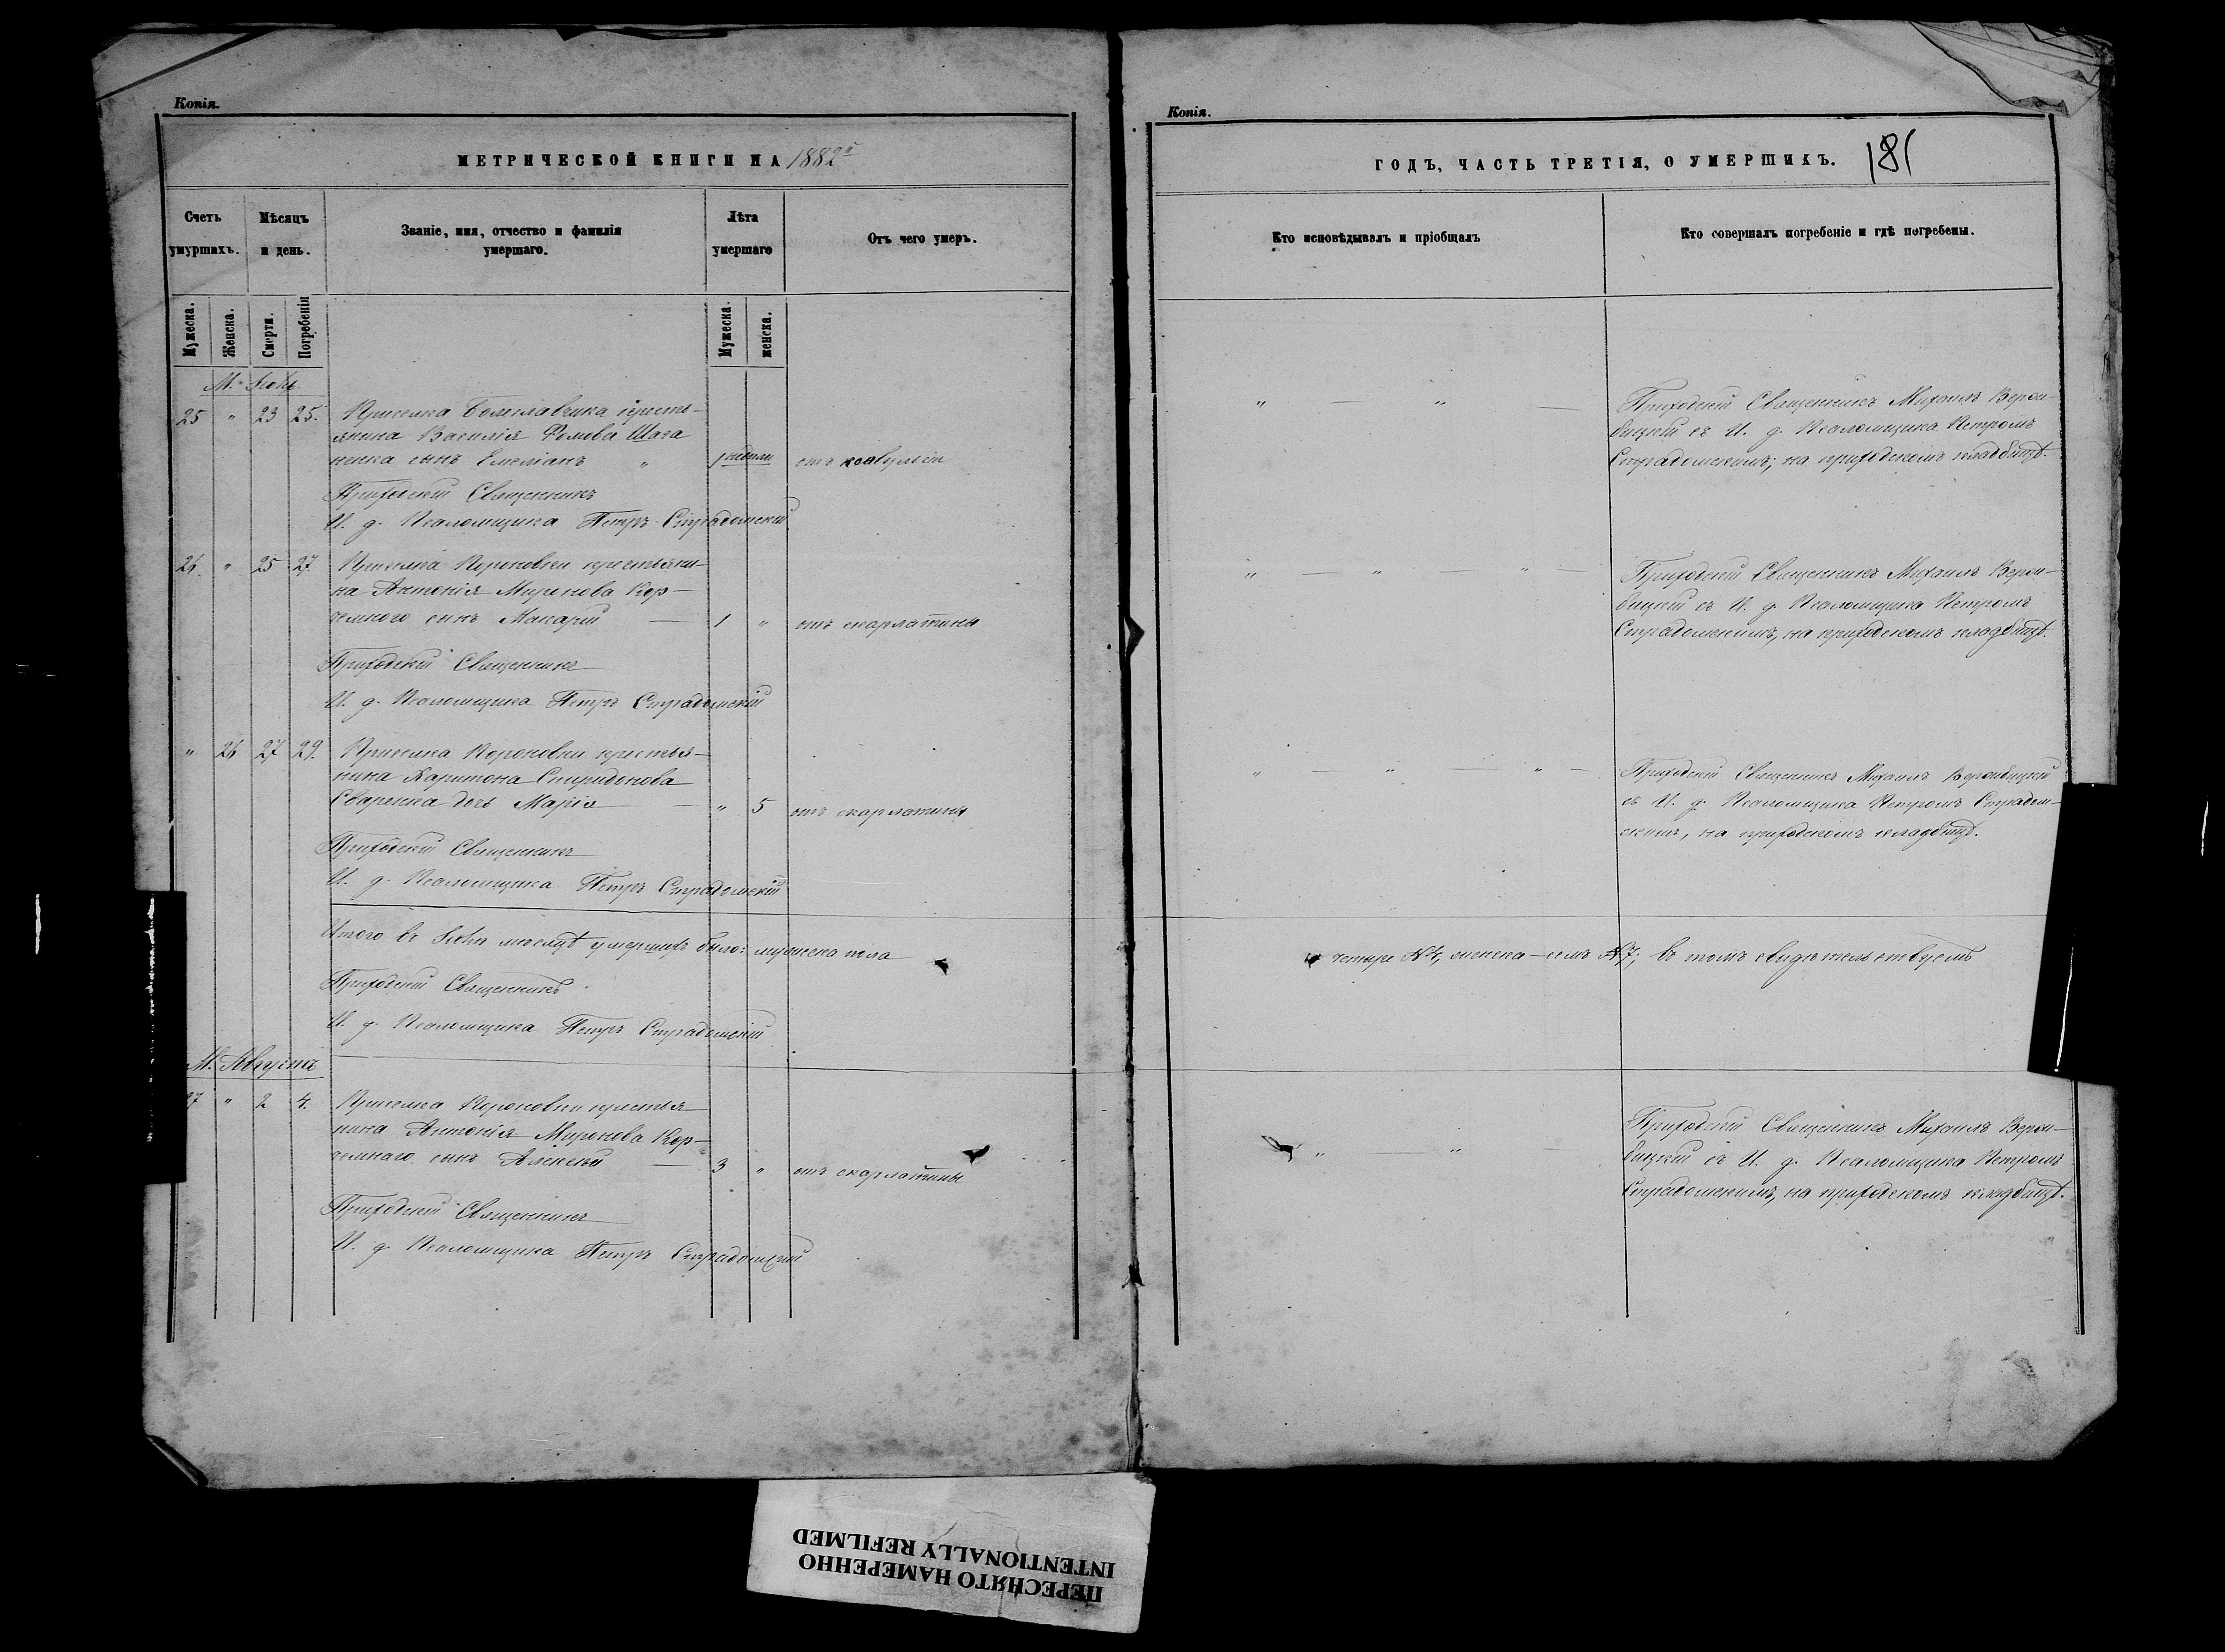 Копія.
МЕТРИЧЕСКОЙ КНИГИ НА 1882й
Счетъ умуршихъ.
Мѣсяцъ и день.
Званіе, имя, отчество и фамилія умершаго.
Лѣта умершаго
Отъ чего умеръ.
Мужеска.
Женска.
Смерти.
Погребенія
Мужеска.
женска.
25 " 23 25. Приселка Болеславчика кресть-
янина Василія Фомова
сынъ Емеліанъ " 1 недели отъ конвульсіи
Приходскій Священникъ
И. д. Псаломщика Петръ Страдомскій
26. " 25 27. Приселка Короновки крестьяни-
на Антонія Миронова Кор-
чемного сынъ Макарій — 1 " отъ скарлатины
Приходскій Священникъ
И. д. Псаломщика Петръ Страдомскій
" 26 27 29. Приселка Короновки крестья-
нина Харитона Спиридонова
дочь Марія — " 5 отъ скарлатины
Приходскій Священникъ
И. д. Псаломщика Петръ Страдомскій
Итого въ мѣсяцѣ умершихъ было: мужеска пола
Приходскій Священникъ
И. д. Псаломщика Петръ Страдомскій
М. Августъ
27 " 2 4. Приселка Короновки крестья
нина Антонія Миронова Кор-
чемнаго сынъ Алексѣй — 3 " отъ скарлатины
Приходскій Священникъ
И. д. Псаломщика Петръ Страдомскій
Копія.
ГОДЪ, ЧАСТЬ ТРЕТІЯ, О УМЕРШИХЪ. 181
Кто исповѣдывалъ и пріобщалъ
Кто совершалъ погребеніе и гдѣ погребены.
" — " — Приходскій Священникъ Михаилъ
съ И. д. Псаломщика Петромъ
Страдомскимъ; на приходскомъ кладбищѣ.
" " — " — Приходскій Священникъ Михаилъ
съ И. д. Псаломщика Петромъ
Страдомскимъ, на приходскомъ кладбищѣ.
" " — " — Приходскій Священникъ Михаилъ
съ И. д. Псаломщика Петромъ Страдом-
скимъ, на приходскомъ кладбищѣ.
четыре №4, женска — семь №7; въ томъ свидѣтельствуемъ
" — " — Приходскій Священникъ Михаилъ
съ И. д. Псаломщика Петромъ
Страдомскимъ, на приходскомъ кладбищѣ.
ПЕРЕСНЯТО НАМЕРЕННО
INTENTIONALLY REFILMED